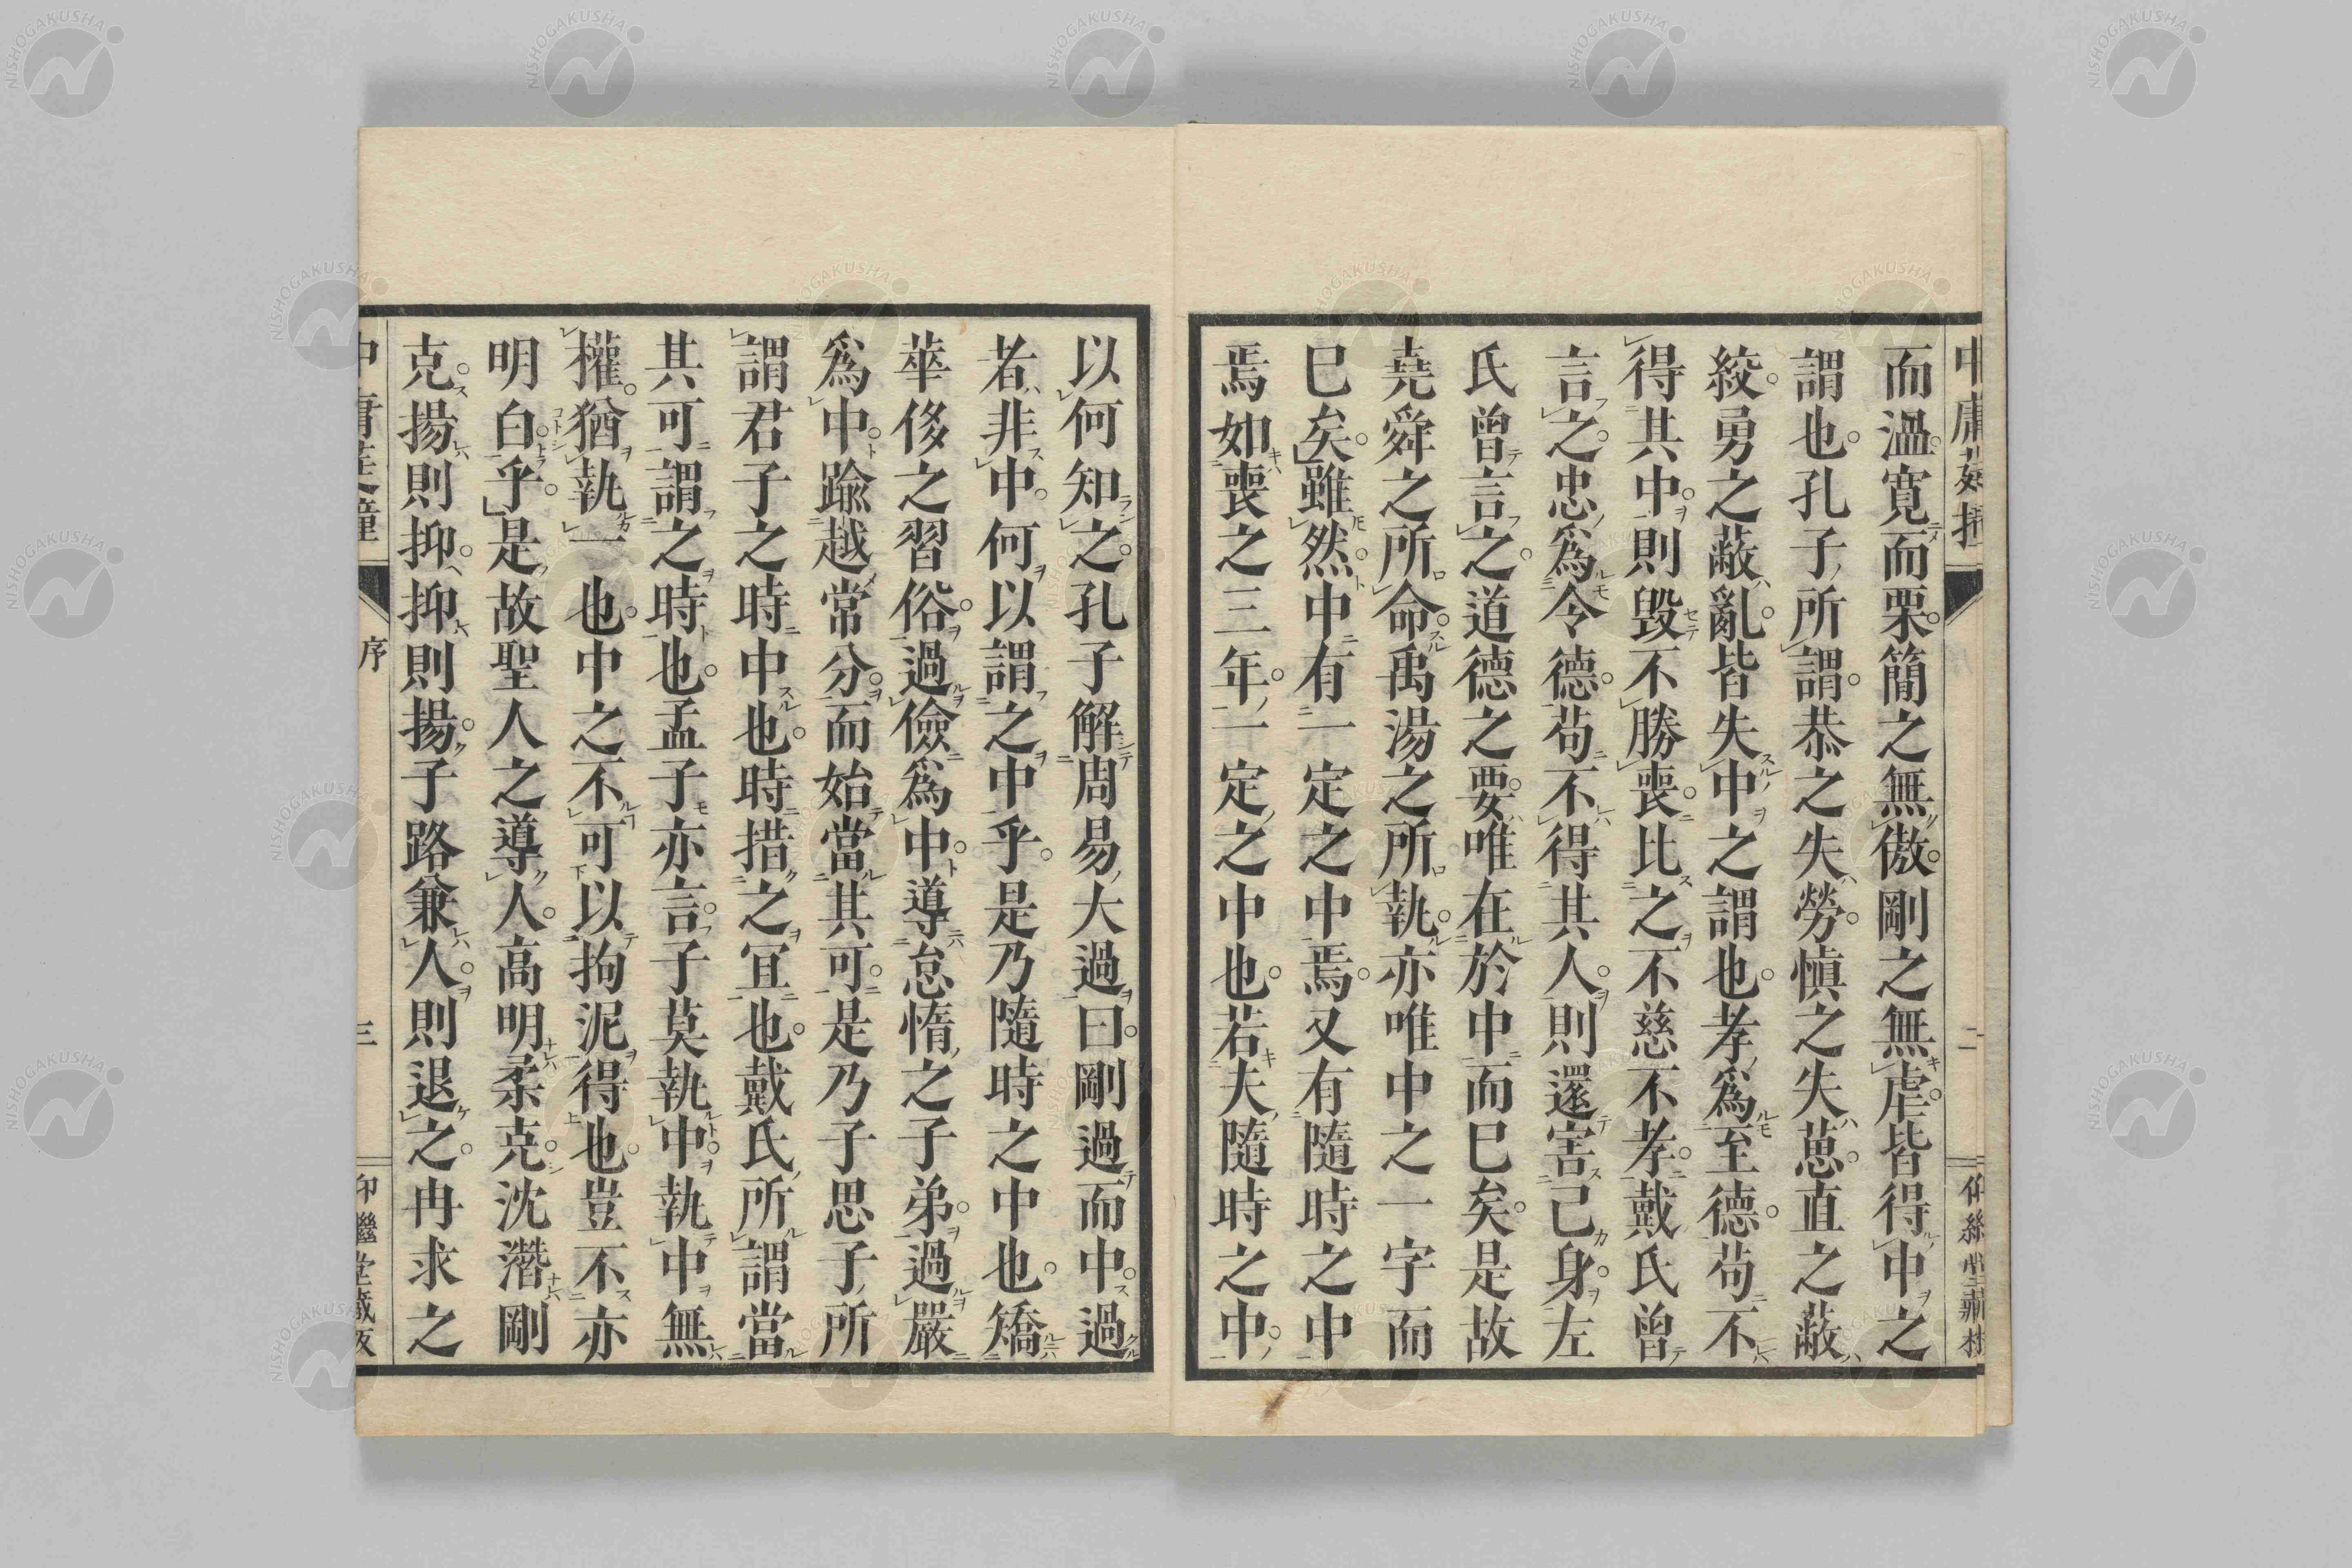 而溫寬而栗簡之無傲剛之無虐皆得中之
謂也孔子所謂恭之失勞愼之失葸直之蔽
絞勇之蔽亂皆失中之謂也孝爲至德苟不
得其中則毀不勝喪比之不慈不孝戴氏曾
言之忠爲令德苟不得其人則還害己身左
氏曾言之道德之要唯在於中而已矣是故
堯舜之所命禹湯之所執亦唯中之一字而
已矣雖然中有一定之中焉又有隨時之中
焉如喪之三年一定之中也若夫隨時之中
以何知之孔子解周易大過曰剛過而中過
若非中何以謂之中乎是乃隨時之中也矯
華侈之習俗過儉爲中導怠惰之子弟過嚴
爲中踰越常分而始當其可是乃子思子所
謂君子之時中也時措之宜也戴氏所謂當
其可謂之時也孟子亦言子莫執中執中無
權猶執一也中之不可以拘泥得也豈不亦
明白乎是故聖人之導人高明柔克沈潛剛
克揚則抑抑則揚子路兼人則退之冉求之
序
三
NISHOGAKUSHA